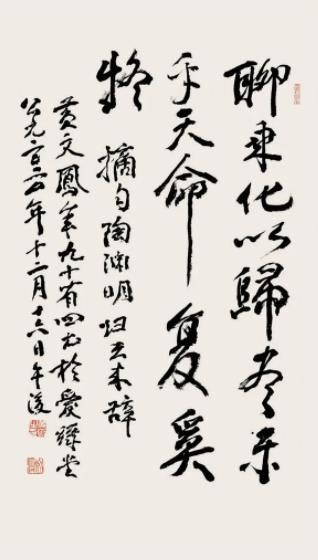 聊乘化以歸盡樂
乎天命复奚
疑 摘句陶渊明归去来辞
黄文鳳年九十有四书於愛堂
公元年十二月十六日午後